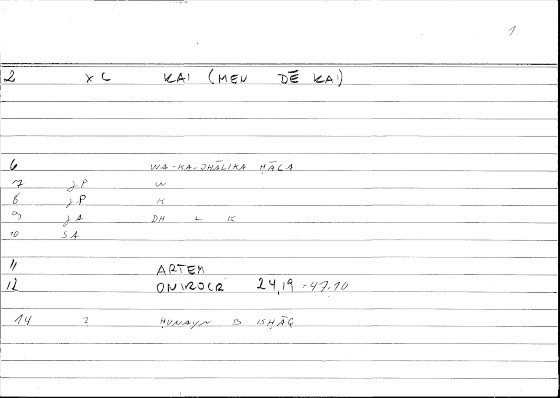 1
2 xC KAI (MEN DĒ KAI)
6 WA-KA-DHĀLIKA HĀḎĀ
7 jP W
8 jP K
9 jA DH L K
10 SA
11 ARTEM
12 ONIROCR 24,19 - 47.10
14 2 ḤUNAYN B ISḤĀQ